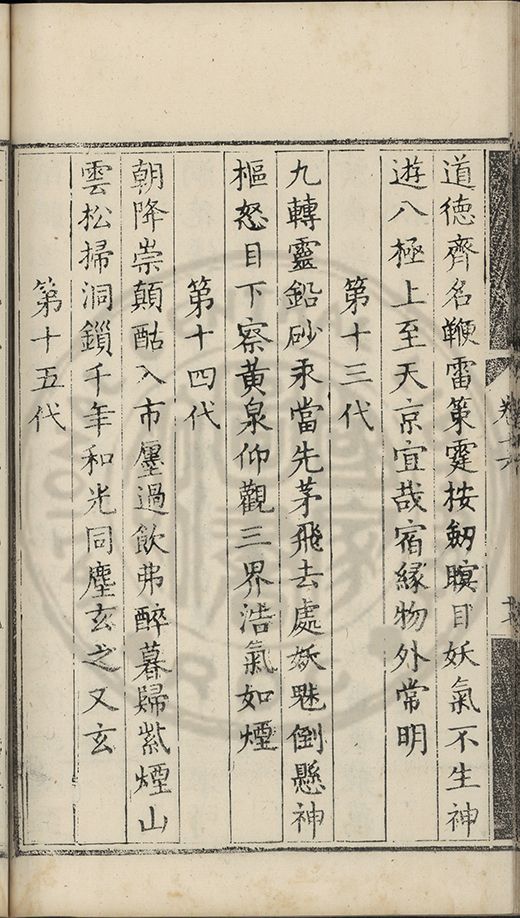 道德齊名鞭雷策霆桉劒瞑目妖氣不生神
遊八極上至天京宜哉宿緣物外常明
第十三代
九轉靈鉛砂汞當先茅飛去處妖魅倒懸神
樞怒目下察黃泉仰觀三界浩氣如煙
第十四代
朝降崇顛酤入市廛過飲弗醉暮歸紫煙山
雲松掃洞鎖千年和光同塵玄之又玄
第十五代